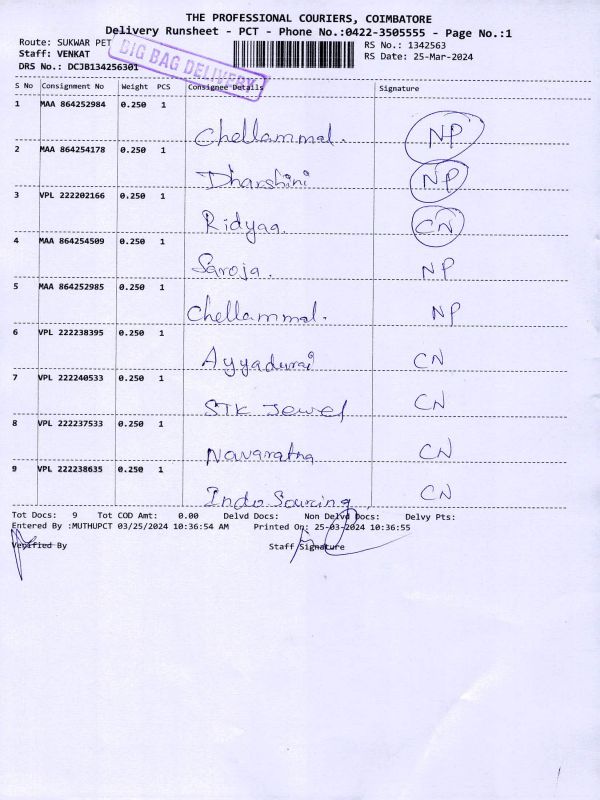 THE PROFESSIONAL COURIERS, COIMBATORE
Delivery Runsheet - PCT - Phone No.:0422-3505555 - Page No.:1
Route: SUKWAR PET
RS No.: 1342563
Staff: VENKAT
RS Date: 25-Mar-2024
DRS No.: DCJB134256301
BIG BAG DELIVERY
S No Consignment No Weight PCS Consignee Details Signature
1 MAA 864252984 0.250 1 Chellammal. NP
2 MAA 864254178 0.250 1 Dharshini NP
3 VPL 222202166 0.250 1 Ridyaa. CN
4 MAA 864254509 0.250 1 Saroja. NP
5 MAA 864252985 0.250 1 Chellammal. NP
6 VPL 222238395 0.250 1 Ayyadurai CN
7 VPL 222240533 0.250 1 STK Jewel CN
8 VPL 222237533 0.250 1 Navaratna CN
9 VPL 222238635 0.250 1 Indo Sourcing CN
Tot Docs: 9 Tot COD Amt: 0.00 Delvd Docs: Non Delvd Docs: Delvy Pts:
Entered By :MUTHUPCT 03/25/2024 10:36:54 AM Printed On: 25-03-2024 10:36:55
Verified By Staff Signature